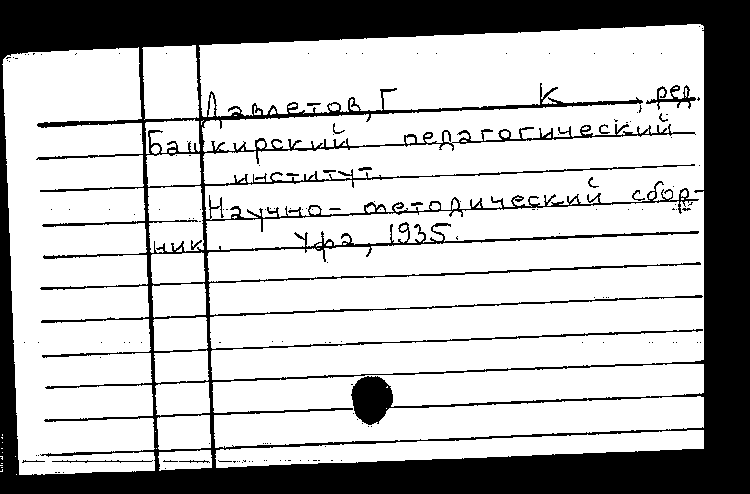 Давлетов, Г К , ред.
Башкирский педагогический
институт.
Научно-методический сбор-
ник. Уфа, 1935.